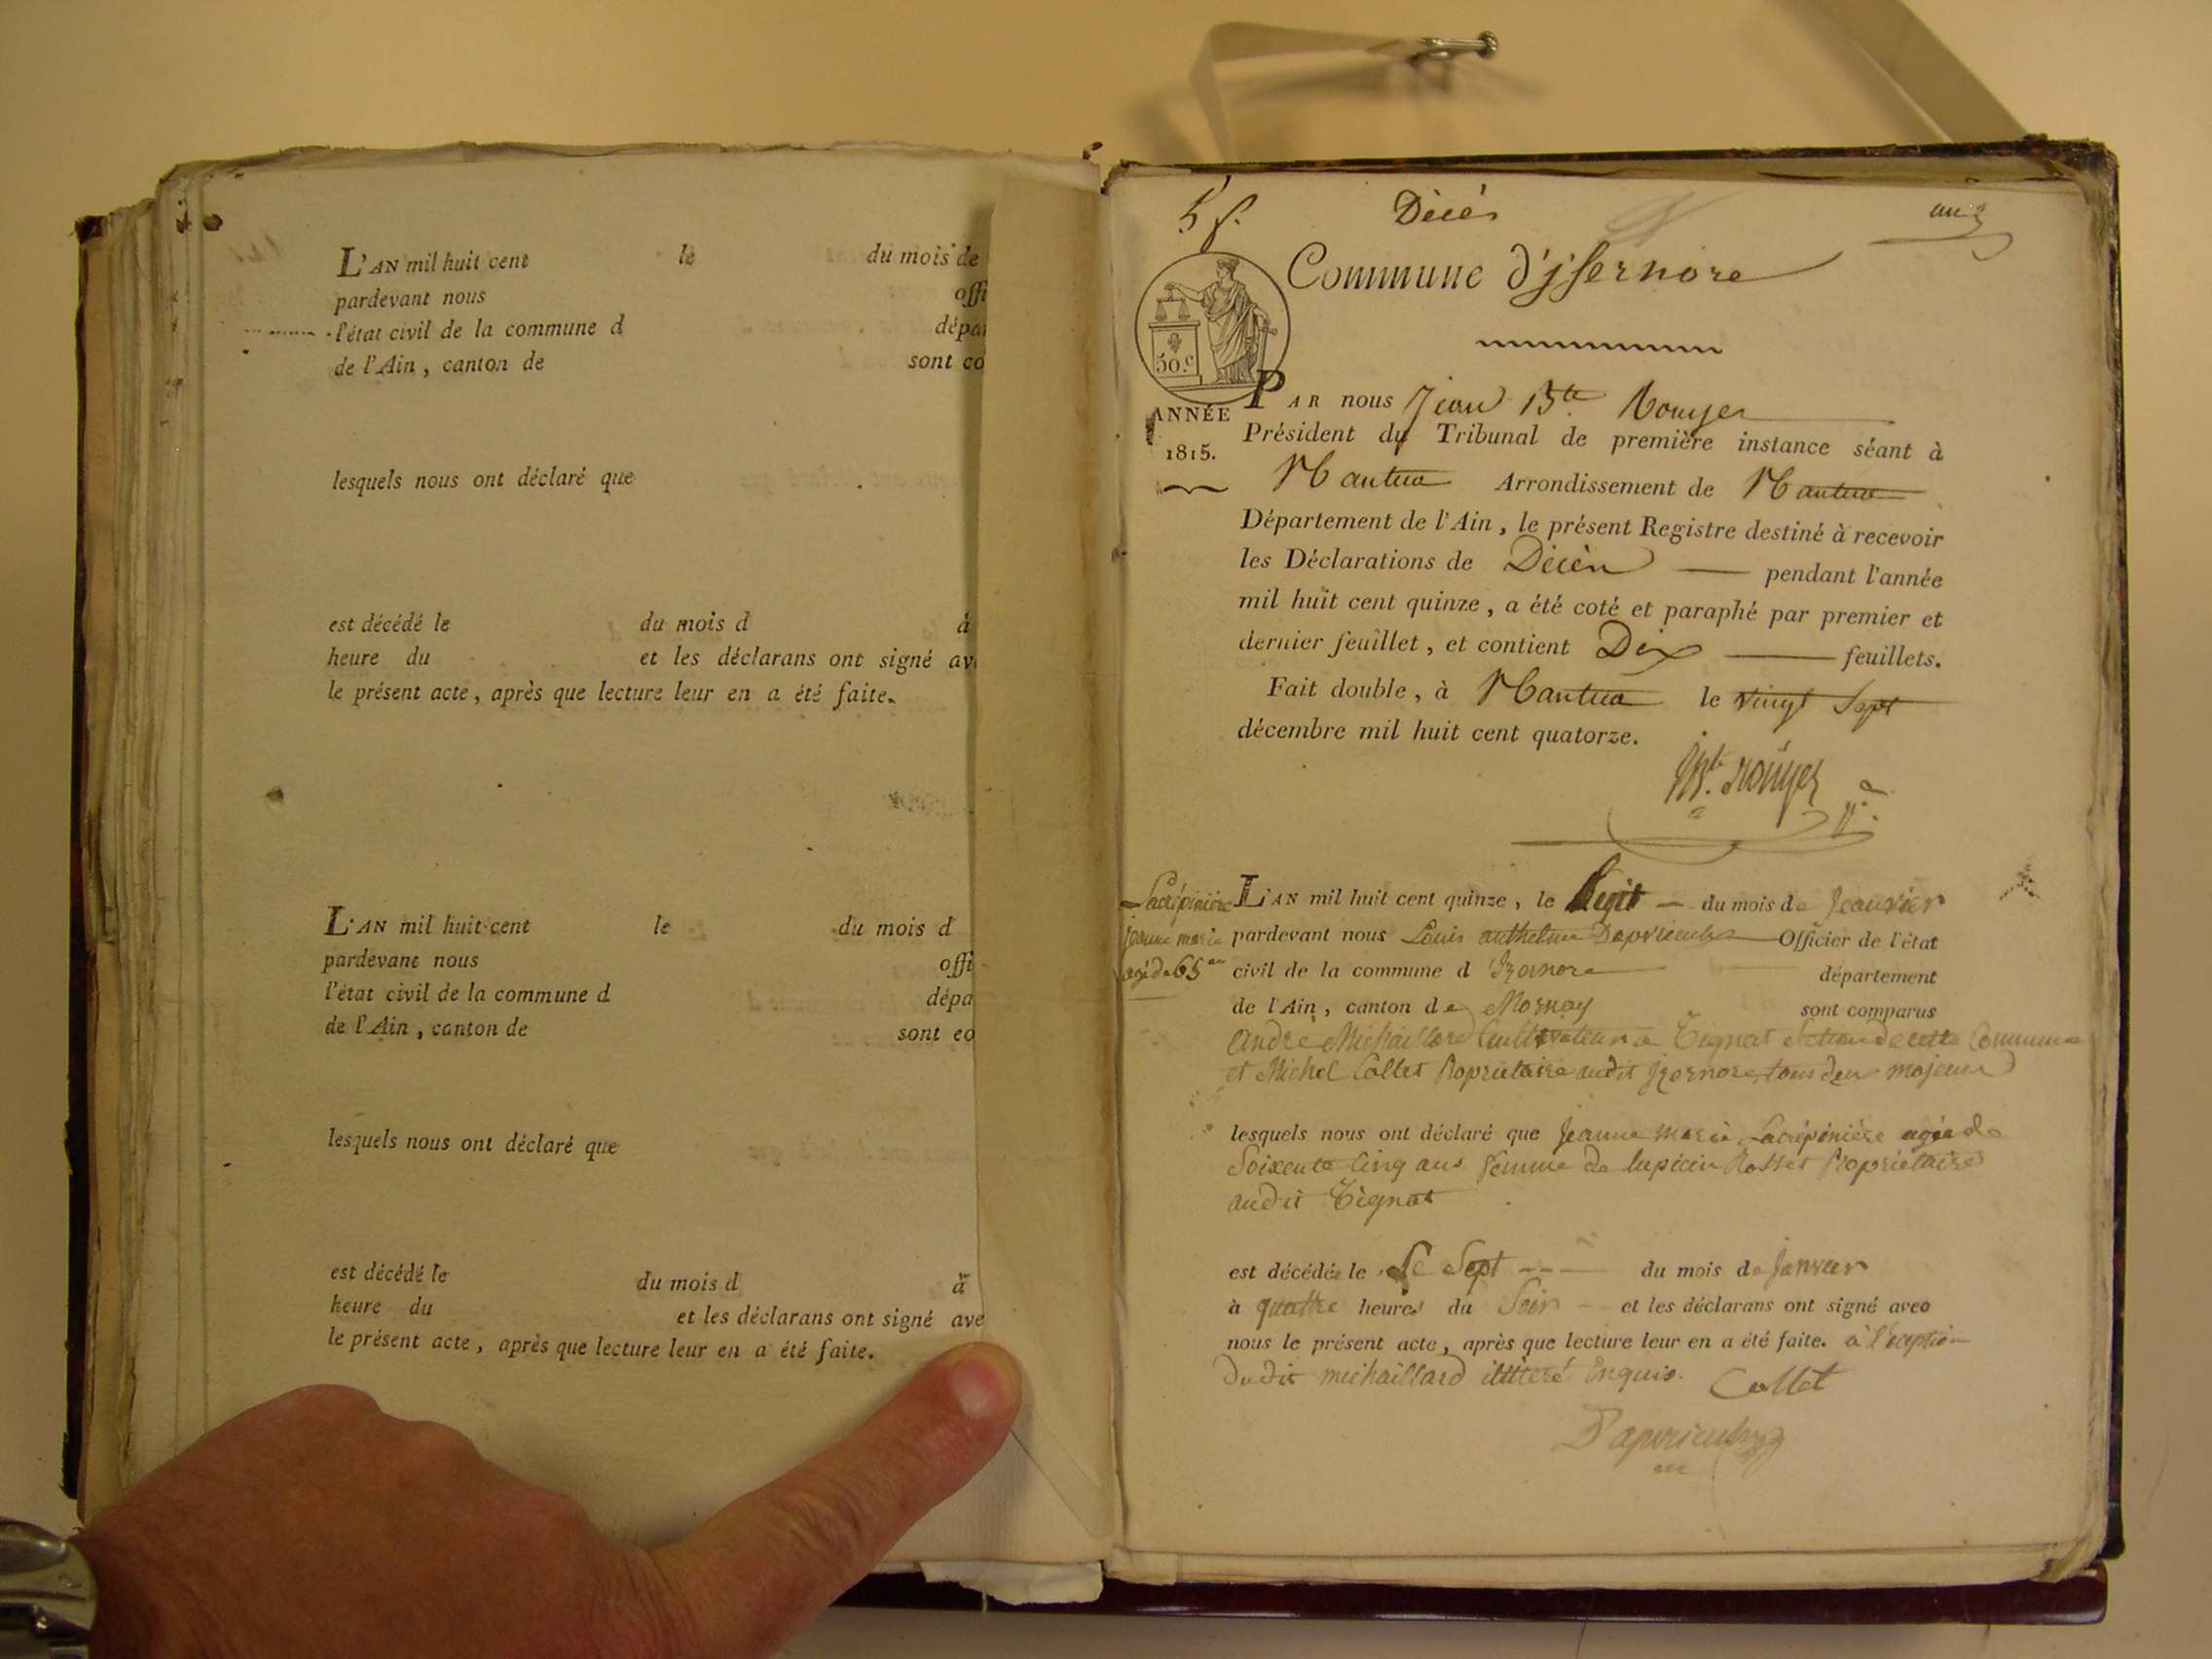 L'AN mil huit cent le du mois de
pardevant nous offi
l'état civil de la commune d dépar
de l'Ain, canton de sont co
lesquels nous ont déclaré que
est décédé le du mois d à
heure du et les déclarans ont signé av
le présent acte, après que lecture leur en a été faite.
L'AN mil huit cent le du mois d
pardevant nous offi
l'état civil de la commune d dépa
de l'Ain, canton de sont co
lesquels nous ont déclaré que
est décédé le du mois d à
heure du et les déclarans ont signé ave
le présent acte, après que lecture leur en a été faite.
5 f. Décès
Commune d'jssernore
50.c
ANNÉE
1815.
PAR nous Jean Bte Rouyer
Président du Tribunal de première instance séant à
Nantua Arrondissement de Nantua
Département de l'Ain, le présent Registre destiné à recevoir
les Déclarations de Décès pendant l'année
mil huit cent quinze, a été coté et paraphé par premier et
dernier feuillet, et contient Dix feuillets.
Fait double, à Nantua le vingt Sept
décembre mil huit cent quatorze.
Bte. rouyer
Lacrépinière
jeanne marie
agé de 65 an
L'AN mil huit cent quinze, le huit du mois de Jeanvier
pardevant nous Louis anthelme Officier de l'état
civil de la commune d'Izernore département
de l'Ain, canton de Mornay sont comparus
andré Michaillard Cultivateur a Tignat Section de cette Commune
et Michel Collet Propriétaire audit Izernore tous deu majeurs
lesquels nous ont déclaré que Jeanne marie Lacrépinière agée de
Soixente Cinq ans femme de lupicin Rosset Propriétaire
audit Tignat
est décédée le Le Sept du mois de Janvier
à quattre heures du Soir et les déclarans ont signé avec
nous le présent acte, après que lecture leur en a été faite. à l'éxeption
dudit michaillard illitéré Enquis. Collet